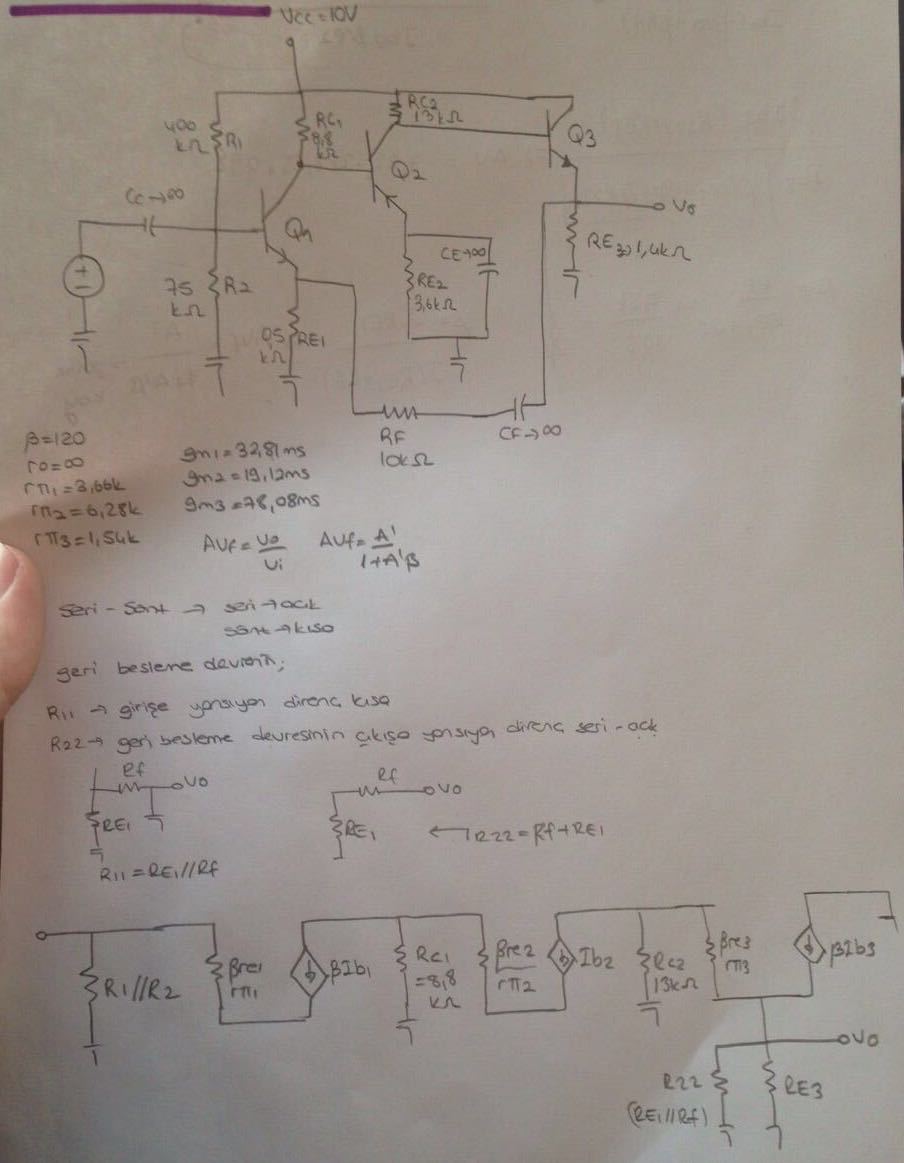 Vcc=10V
400
kΩ
R1
RC1
8,8
kΩ
RC2
13kΩ
Q3
Q2
Cc→∞
Q1
Vo
CE→∞
RE3=1,4kΩ
75
kΩ
R2
RE2
3,6kΩ
0,5
kΩ
RE1
RF
10kΩ
CF→∞
β=120
ro=∞
rπ1=3,66k
rπ2=6,28k
rπ3=1,54k
gm1=32,81ms
gm2=19,12ms
gm3=78,08ms
AVf=Vo/Vi
AVf=A'/1+A'β
Seri-Şönt → seri→açık
şönt→kısa
geri besleme devresi;
R11 → girişe yansıyan direnç kısa
R22→ geri besleme devresinin çıkışa yansıyan direnç seri-açık
Rf
Vo
RE1
R11=RE1//Rf
Rf
Vo
RE1
R22=Rf+RE1
R1//R2
βre1
rπ1
βIb1
Rc1
=8,8
kΩ
βre2
rπ2
Ib2
Rc2
13kΩ
βre3
rπ3
βIb3
Vo
R22
(RE1//Rf)
RE3